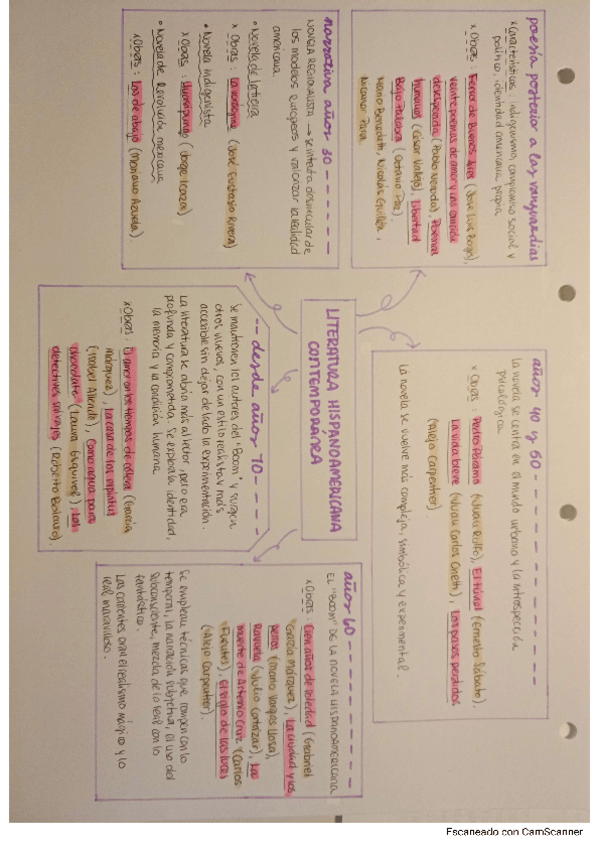 poesía posterior a las vanguardias
x Características: indigenismo, compromiso social y
político, identidad americana propia.
x Obras: Fervor de Buenos Aires (Jose Luis Borges),
veinte poemas de amor y una canción
desesperada (Pablo Neruda), Poemas
humanos (César Vallejo), Libertad
Bajo Palabra (Octavio Paz).
Mario Benedetti, Nicolás Guillén,
Nicanor Parra.
narrativa años 30
NOVELA REGIONALISTA → se intenta desvincular de
los modelos europeos y valorizar la realidad
americana.
• Novela de la tierra
x Obras: La vorágine (José Eustasio Rivera)
• Novela indigenista
x Obras: Huasipungo (Jorge Icaza)
• Novela de Revolución mexicana
x Obras: Los de abajo (Mariano Azuela)
LITERATURA HISPANOAMERICANA
CONTEMPORÁNEA
años 40 y 50
La novela se centra en el mundo urbano y la introspección
psicológica.
x Obras: Pedro Páramo (Juan Rulfo), El túnel (Ernesto Sábato),
La vida breve (Juan Carlos Onetti), Los pasos perdidos
(Alejo Carpentier).
La novela se vuelve más compleja, simbólica y experimental.
-- desde años 70 ----
Se mantienen los autores del "Boom" y surgen
otros nuevos, con un estilo realista y más
accesible sin dejar de lado la experimentación.
La literatura se abría más al lector, pero era
profunda y comprometida. Se explora la identidad,
la memoria y la condición humana.
x Obras: El amor en los tiempos de cólera (García
Márquez), La casa de los espíritus
(Isabel Allende), Como agua para
chocolate (Laura Esquivel), Los
detectives salvajes (Roberto Bolaño).
años 60
EL "BOOM" DE LA NOVELA HISPANOAMERICANA
x Obras: Cien años de soledad (Gabriel
García Márquez), La ciudad y los
perros (Mario Vargas Llosa),
Rayuela (Julio Cortázar), La
muerte de Artemio Cruz (Carlos
Fuentes), El siglo de las luces
(Alejo Carpentier).
Se emplean técnicas que rompen con lo
temporal, la narración subjetiva, el uso del
subconsciente, mezcla de lo real con lo
fantástico.
Las corrientes eran el realismo mágico y lo
real maravilloso.
Escaneado con CamScanner